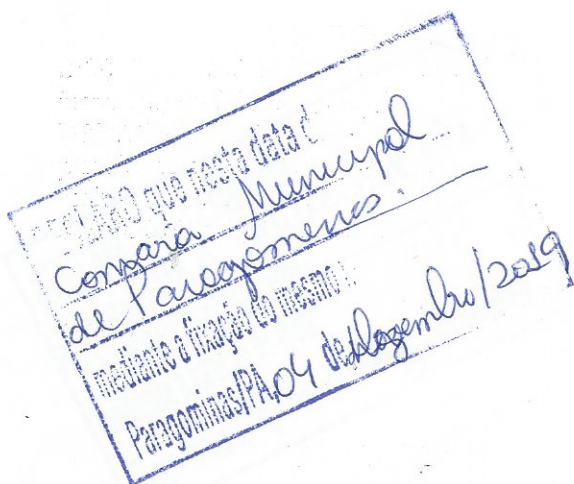 DECLARO que nesta data d
Camara Municipal
de Paragominas.
mediante a fixação do mesmo
Paragominas/PA, 04 de Dezembro/2019